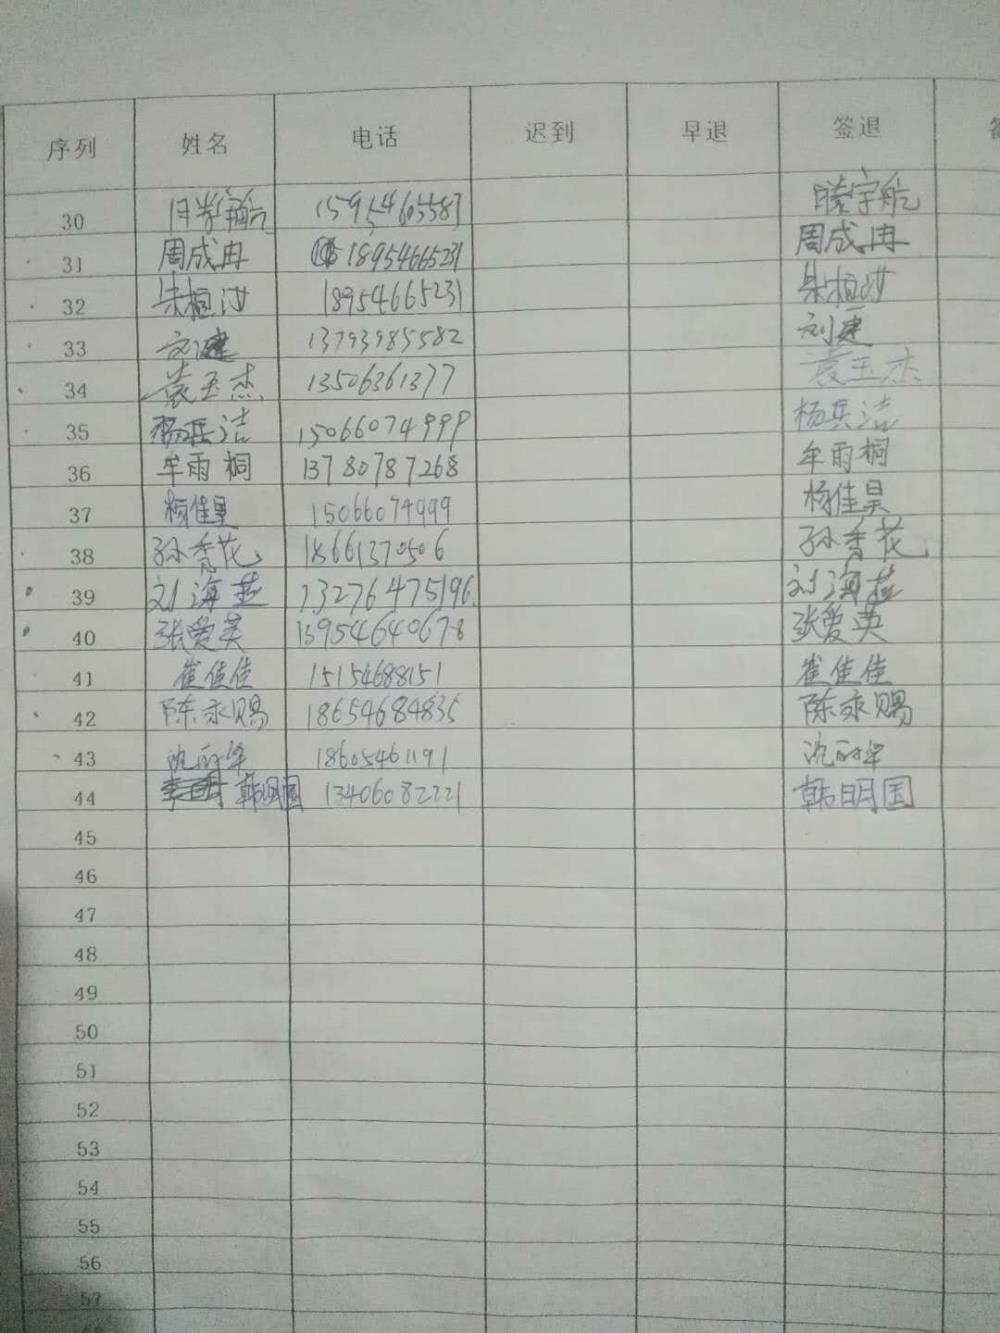 序列 姓名 电话 迟到 早退 签退
30 滕宇航 15954605583 滕宇航
31 周成冉 18954665231 周成冉
32 朱桓汝 18954665231 朱桓汝
33 刘建 13793985582 刘建
34 袁玉杰 13506361377 袁玉杰
35 杨兵洁 15066074999 杨兵洁
36 牟雨桐 13780787268 牟雨桐
37 杨佳昊 15066074999 杨佳昊
38 孙香花 18661370506 孙香花
39 刘海燕 13276475196 刘海燕
40 张爱英 13954640678 张爱英
41 崔佳佳 15154688151 崔佳佳
42 陈永赐 18654684835 陈永赐
43 18605461191
44 韩明国 13406082221 韩明国
45
46
47
48
49
50
51
52
53
54
55
56
57